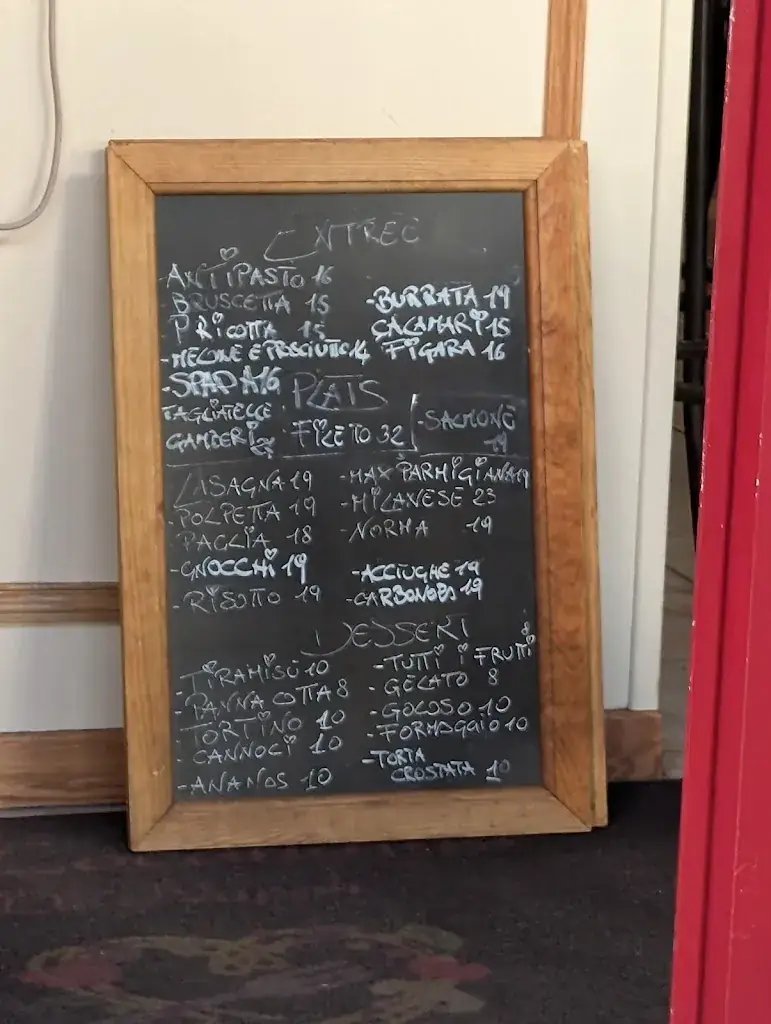 ENTREE
-ANTIPASTO 16
-BRUSCETTA 15
-BURRATA 19
P RICOTTA 15
CALAMARI 15
-MELONE E PROSCIUTTO 14
FIGARA 16
-SPADA 16
PLATS
TAGLIATELLE
GAMBERI
FILETO 32
-SALMONE
19
LASAGNA 19
-MAX PARMIGIANA 19
-POLPETTA 19
-MILANESE 23
PAGLIA 18
-NORMA 19
-GNOCCHI 19
-ACCIUGHE 19
-RISOTTO 19
-CARBONARA 19
DESSERT
-TIRAMISU 10
-TUTTI I FRUTTI 8
-PANNA COTTA 8
-GELATO 8
-TORTINO 10
-GOLOSO 10
-CANNOLI 10
-FORMAGGIO 10
-ANANAS 10
-TORTA
CROSTATA 10